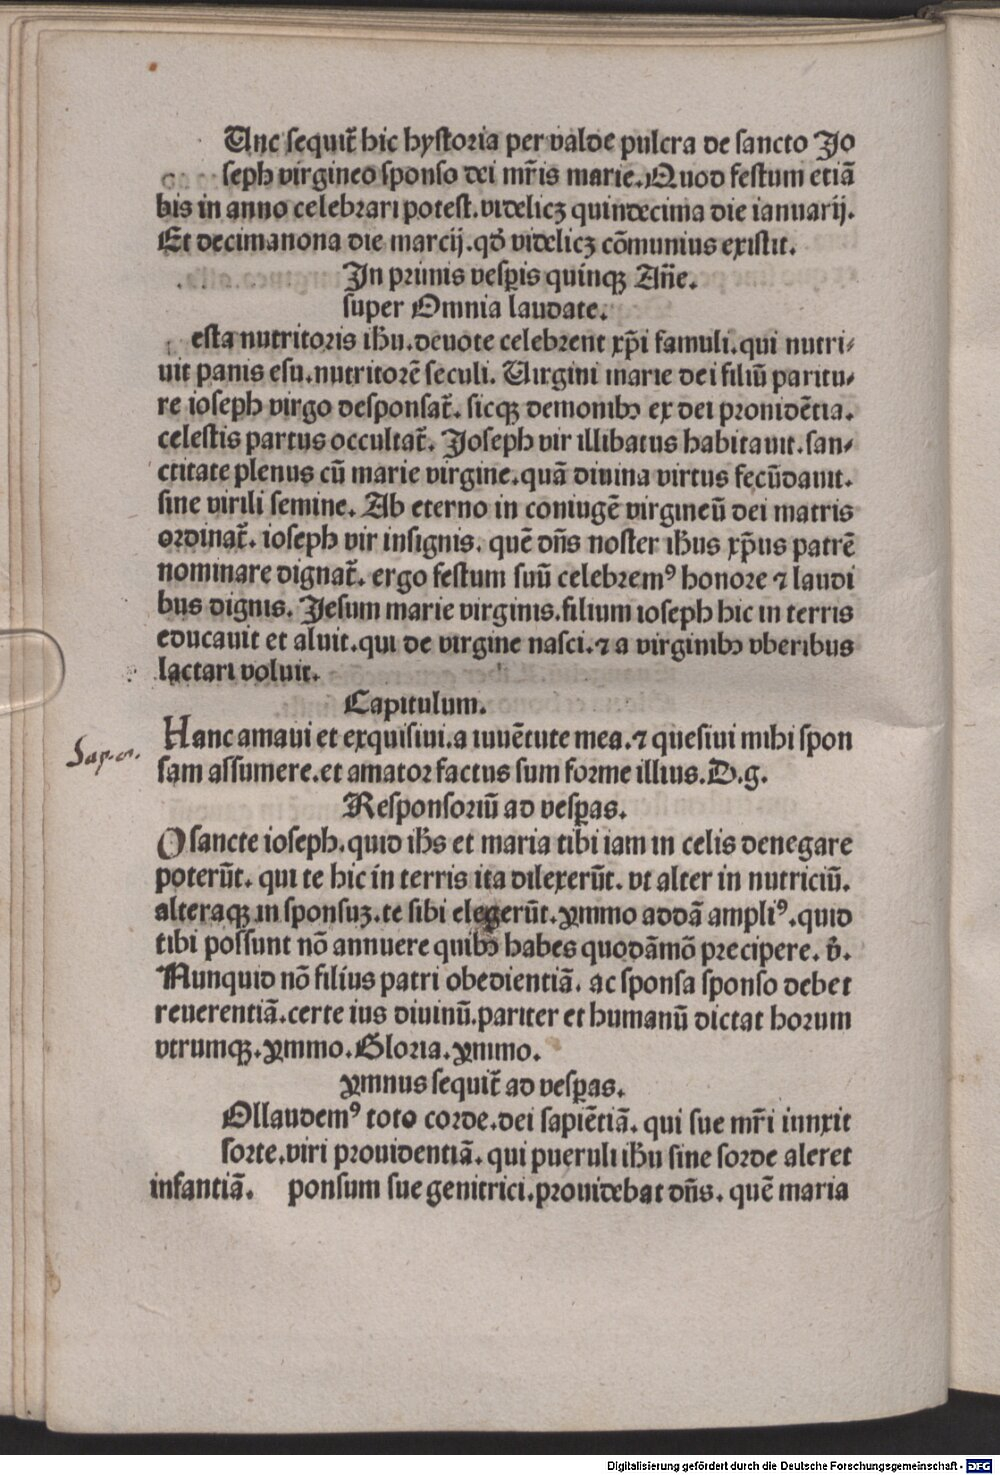 Unc sequit̃ hic hystoria per valde pulcra de sancto Jo
seph virgineo sponso dei mr̃is marie. Quod festum etiã
bis in anno celebrari potest. videlicz quindecima die ianuarij.
Et decimanona die marcij. qđ videlicz cõmunius existit.
In primis vesꝑis quinqꝫ Añe.
super Omnia laudate.
esta nutritoris ihũ. deuote celebrent xp̃i famuli. qui nutri⸗
uit panis esu. nutritorẽ seculi. Uirgini marie dei filiũ paritu⸗
re ioseph virgo desponsat̃. sicqꝫ demonibꝰ ex dei prouidẽtia.
celestis partus occultat̃. Joseph vir illibatus habitauit. san⸗
ctitate plenus cũ marie virgine. quã diuina virtus fecũdauit.
sine virili semine. Ab eterno in coniugẽ virgineũ dei matris
ordinat̃. ioseph vir insignis. quẽ dñs noster ihũs xp̃us patrẽ
nominare dignat̃. ergo festum suũ celebremꝰ honore ⁊ laudi
bus dignis. Jesum marie virginis. filium ioseph hic in terris
educauit et aluit. qui de virgine nasci. ⁊ a virginibꝰ vberibus
lactari voluit.
Capitulum.
Hanc amaui et exquisiui. a iuuẽtute mea. ⁊ quesiui mihi spon
sam assumere. et amator factus sum forme illius. D. g.
Responsoriũ ad vesꝑas.
O sancte ioseph. quid ihs̃ et maria tibi iam in celis denegare
poterũt. qui te hic in terris ita dilexerũt. vt alter in nutriciũ.
alteraqꝫ in sponsuꝫ. te sibi elegerũt. ymmo addã ampliꝰ. quid
tibi possunt nõ annuere quibꝰ habes quodãmõ precipere. v̉.
Nunquid nõ filius patri obedientiã. ac sponsa sponso debet
reuerentiã. certe ius diuinũ. pariter et humanũ dictat horum
vtrumqꝫ. ymmo. Gloria. ymmo.
ymnus sequit̃ ad vesꝑas.
Ollaudemꝰ toto corde. dei sapiẽtiã. qui sue mr̃i iunxit
sorte. viri prouidentiã. qui pueruli ihũ sine sorde aleret
infantiã. ponsum sue genitrici. prouidebat dñs. quẽ maria
Digitalisierung gefördert durch die Deutsche Forschungsgemeinschaft - DFG